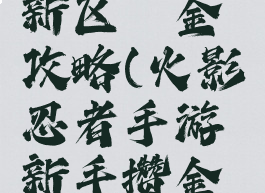 新区 金
攻略(火影
忍者手游
新手攒金